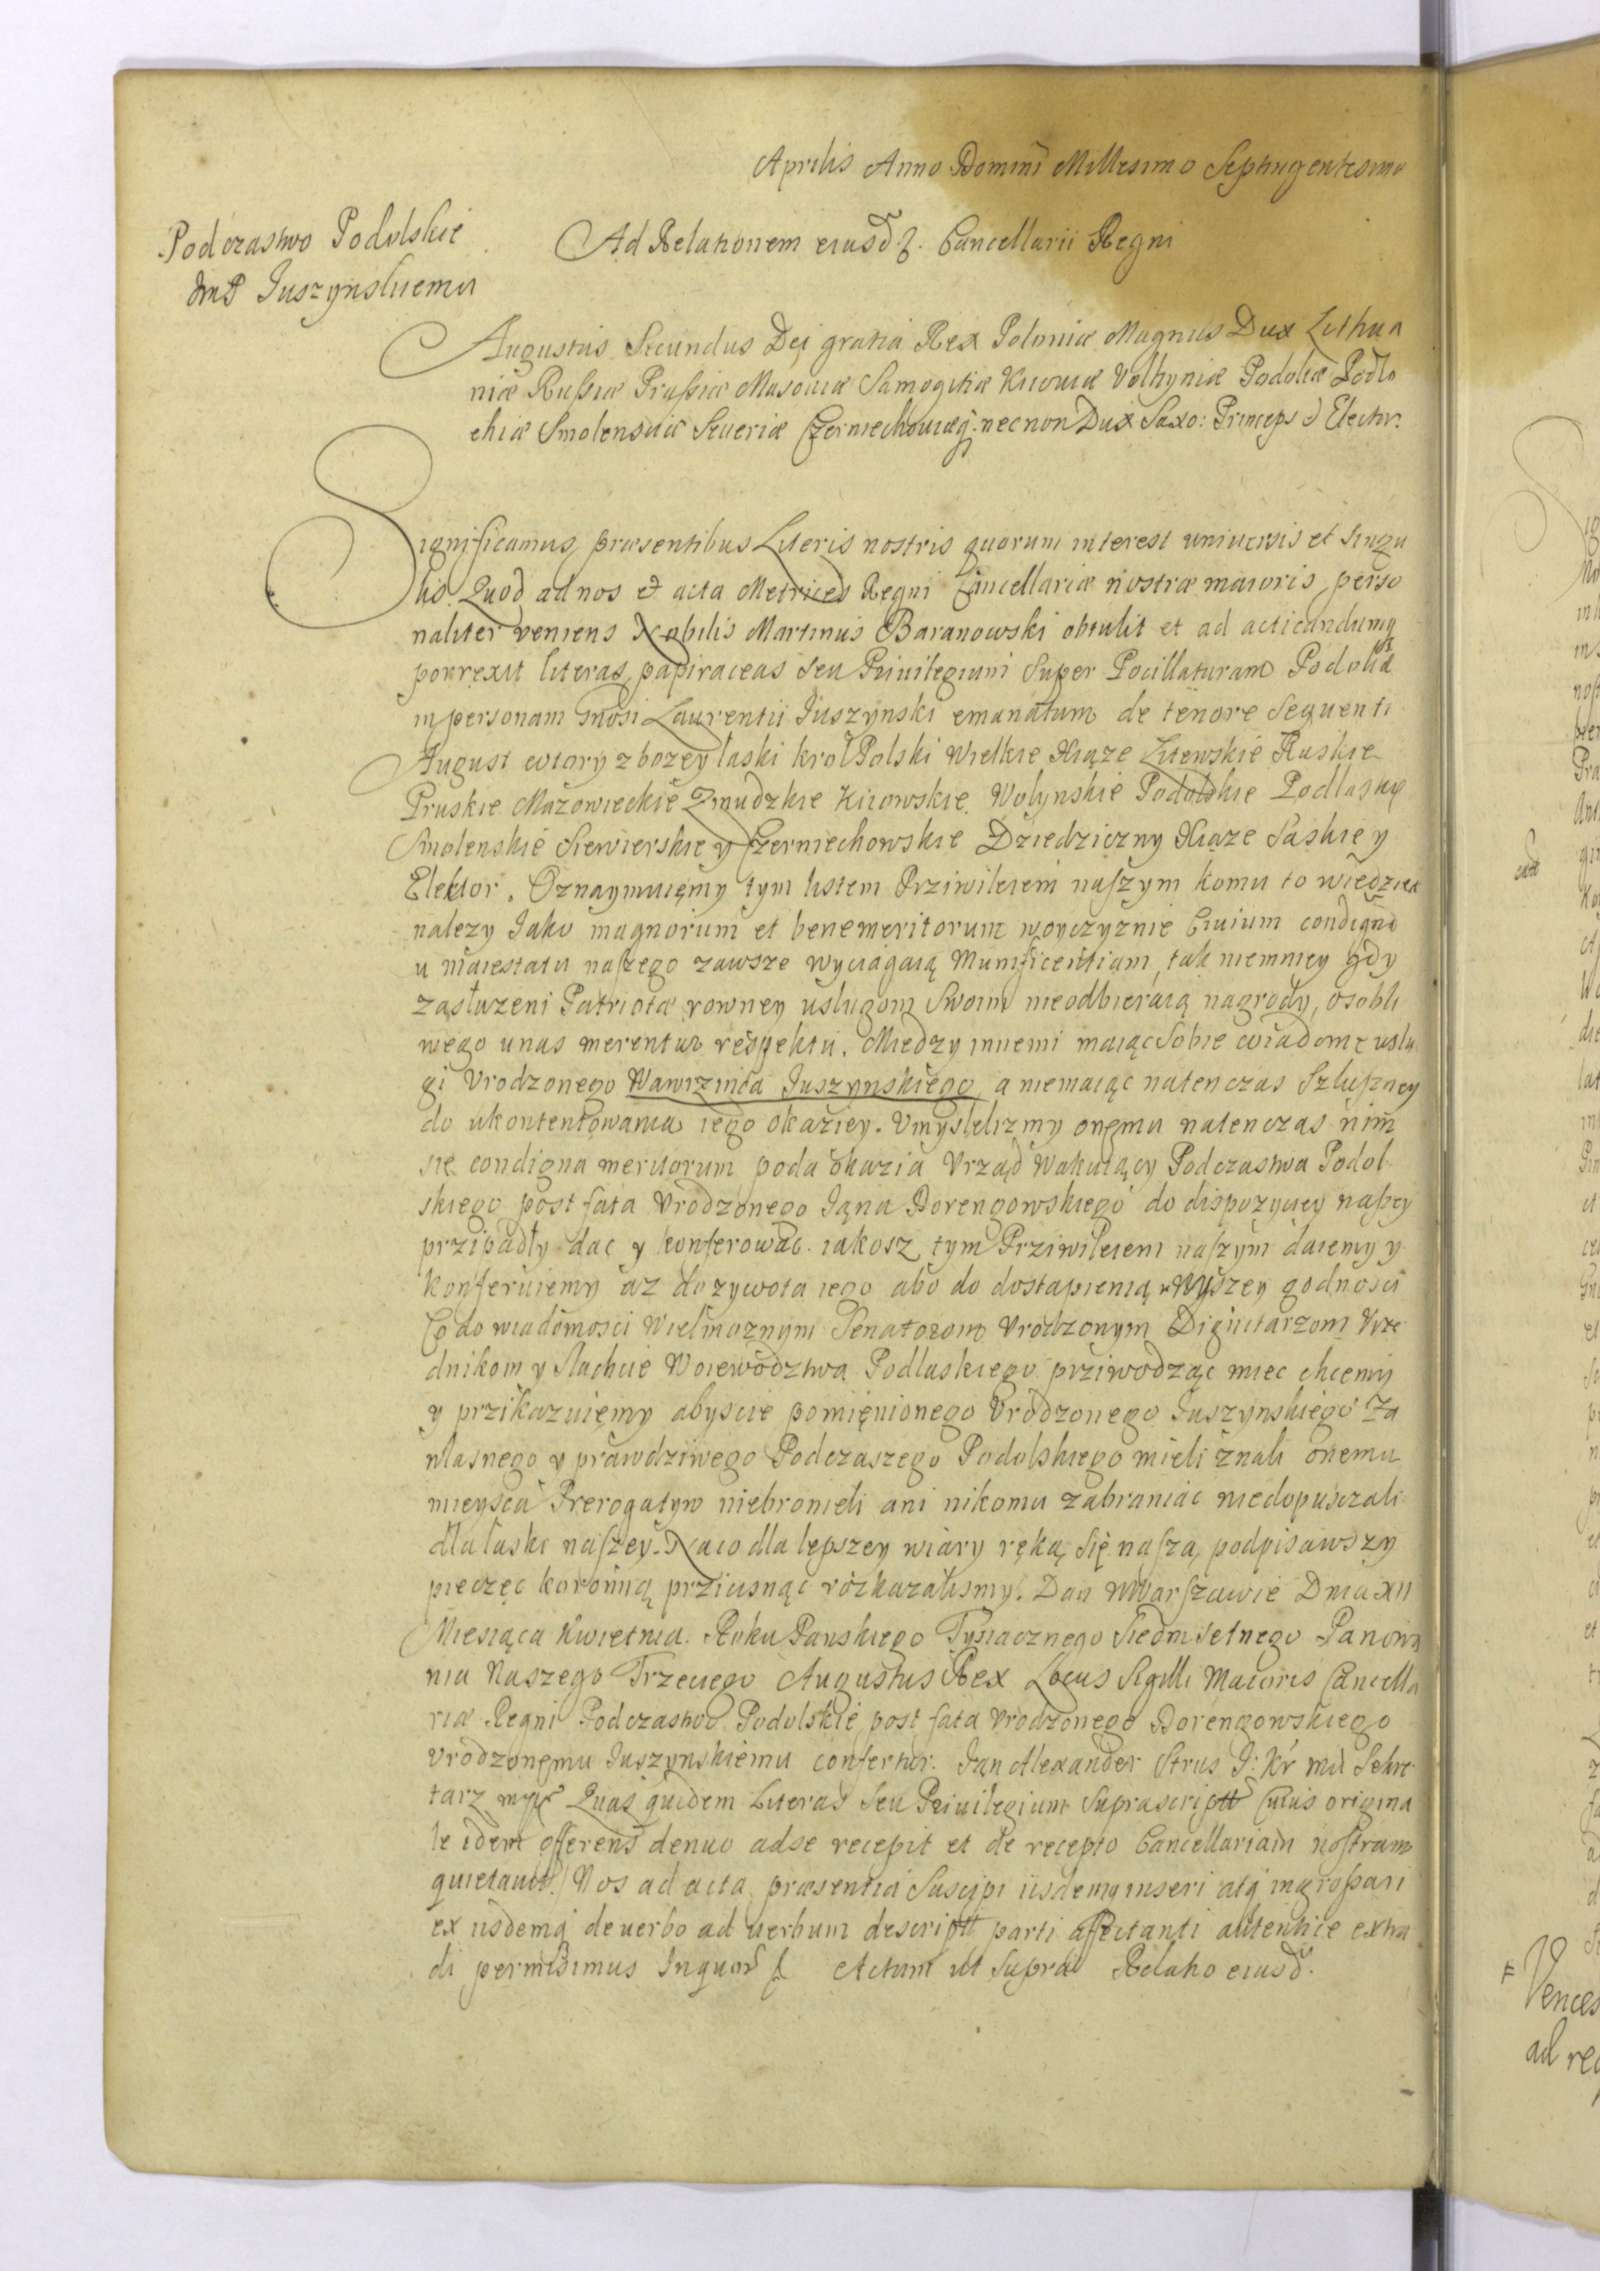 Aprilis Anno Domini Millesimo Septingentesimo
Podczastwo Podolskie
Juszynskiemu
Ad Relationem eiusd. Cancellarii Regni
Augustus Secundus Dei gratia Rex Poloniæ Magnus Dux Lithua
niæ Russiæ Prussiæ Masoviæ Samogitiæ Kiioviæ Volhyniæ Podoliæ Podla
chiæ Smolensciæ Severiæ Czerniechoviæq. necnon Dux Saxo: Princeps Elector.
Significamus præsentibus Literis nostris quorum interest universis et singu
lis. Quod ad nos et acta Metrices Regni Cancellariæ nostræ maioris perso
naliter veniens Nobilis Martinus Baranowski obtulit et ad acticandumq
porrexit literas papiraceas seu Privilegium Super Pocillaturam Podoliæ
in personam Gnosi Laurentii Juszynski emanatum de tenore Sequenti
August wtory z bozey łaski krol Polski Wielkie Xiąze Litewskie Ruskie
Pruskie Mazowieckie Zmudzkie Kiiowskie Wolynskie Podolskie Podlaskie
Smolenskie Siewierskie y Czerniechowskie Dziedziczny Xiąze Saskie y
Elektor. Oznaymuięmy tym listem Prziwileiem naszym komu to wiedziec
nalezy Jako magnorum et benemeritorum woyczyznie Civium condigna
u maiestatu naszego zawsze wyciągaią Munificentiam, tak niemniey gdy
zasłuzeni Patriotæ rowney usługom Swoim nieodbieraią nagrody, osobli
wego unas merentur respektu. Miedzy innemi maiąc Sobie wiadome uslu
gi Vrodzonego Wawrzinca Juszynskiego a niemaiąc natenczas Szluszney
do ukontentowania iego okaziey. Vmyslelizmy onemu natenczas nim
się condigna meritorum poda okazia Vrząd Wakuiący Podczastwa Podol
skiego post fata Vrodzonego Jana Dorengowskiego do dispozyciey naszey
prziпadły dac y konferowac. iakosz tym Prziwileiem naszym daiemy y
konferuiemy az do zywota iego abo do dostąpienia wyszey godnosci
Co do wiadomosci Wielmoznym Senatorom Vrodzonym Dignitarzom Vrzę
dnikom y Slachcie Woiewodztwa Podlaskiego prziwodząc miec chcemy
y przikazuięmy abyscie pomięnionego Vrodzonego Juszynskiego za
własnego y prawdziwego Podczaszego Podolskiego mieli znali onemu
mieysca Prerogatyw niebronieli ani nikomu zabraniac niedopusczali
dla łaski naszey. Naco dla lepszey wiary ręką się naszą podpisawszy
pieczęc koronną prziсisnąc rozkazalismy. Dan w Warszawie Dnia XII
Miesiąca Kwietnia. Roku Panskiego Tysiącznego Siedmsetnego Panowa
nia Naszego Trzeciego Augustus Rex Locus Sigilli Maioris Cancella
riæ Regni Podczastwo Podolskie post fata Vrodzonego Dorengowskiego
Vrodzonemu Juszynskiemu confertur. Jan Alexander Strus J: Kr Mci Sekre
tarz Quas quidem Literas Seu Privilegium Suprascriptt Cuius origina
le idem offerens denuo adse recepit et de recepto Cancellariam nostram
quietavit. Nos ad acta præsentia Suscipi iisdemq inseri atq ingrossari
ex iisdemq de verbo ad verbum descriptt parti affectanti autentice extra
di permisimus Inquor Actum ut Supra Relatio eiusd.